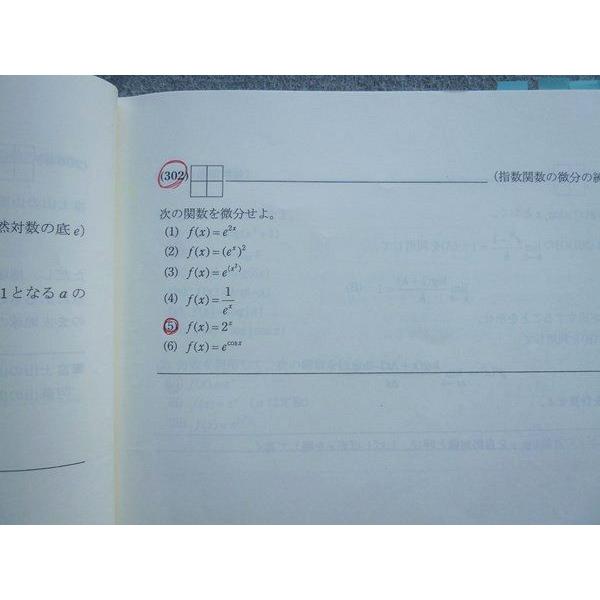 然対数の底 e)
1となる a の
(302)
(指数関数の微分の
次の関数を微分せよ。
(1) f(x)=e^{2x}
(2) f(x)=(e^x)^2
(3) f(x)=e^{(x^2)}
(4) f(x)=\frac{1}{e^x}
(5) f(x)=2^x
(6) f(x)=e^{cosx}